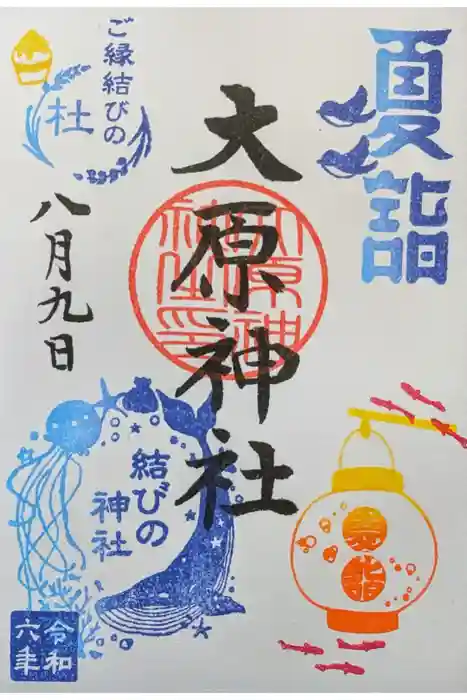 夏詣
大原神社
ご縁結びの
杜
八月九日
結びの
神社
夏詣
令和
六年